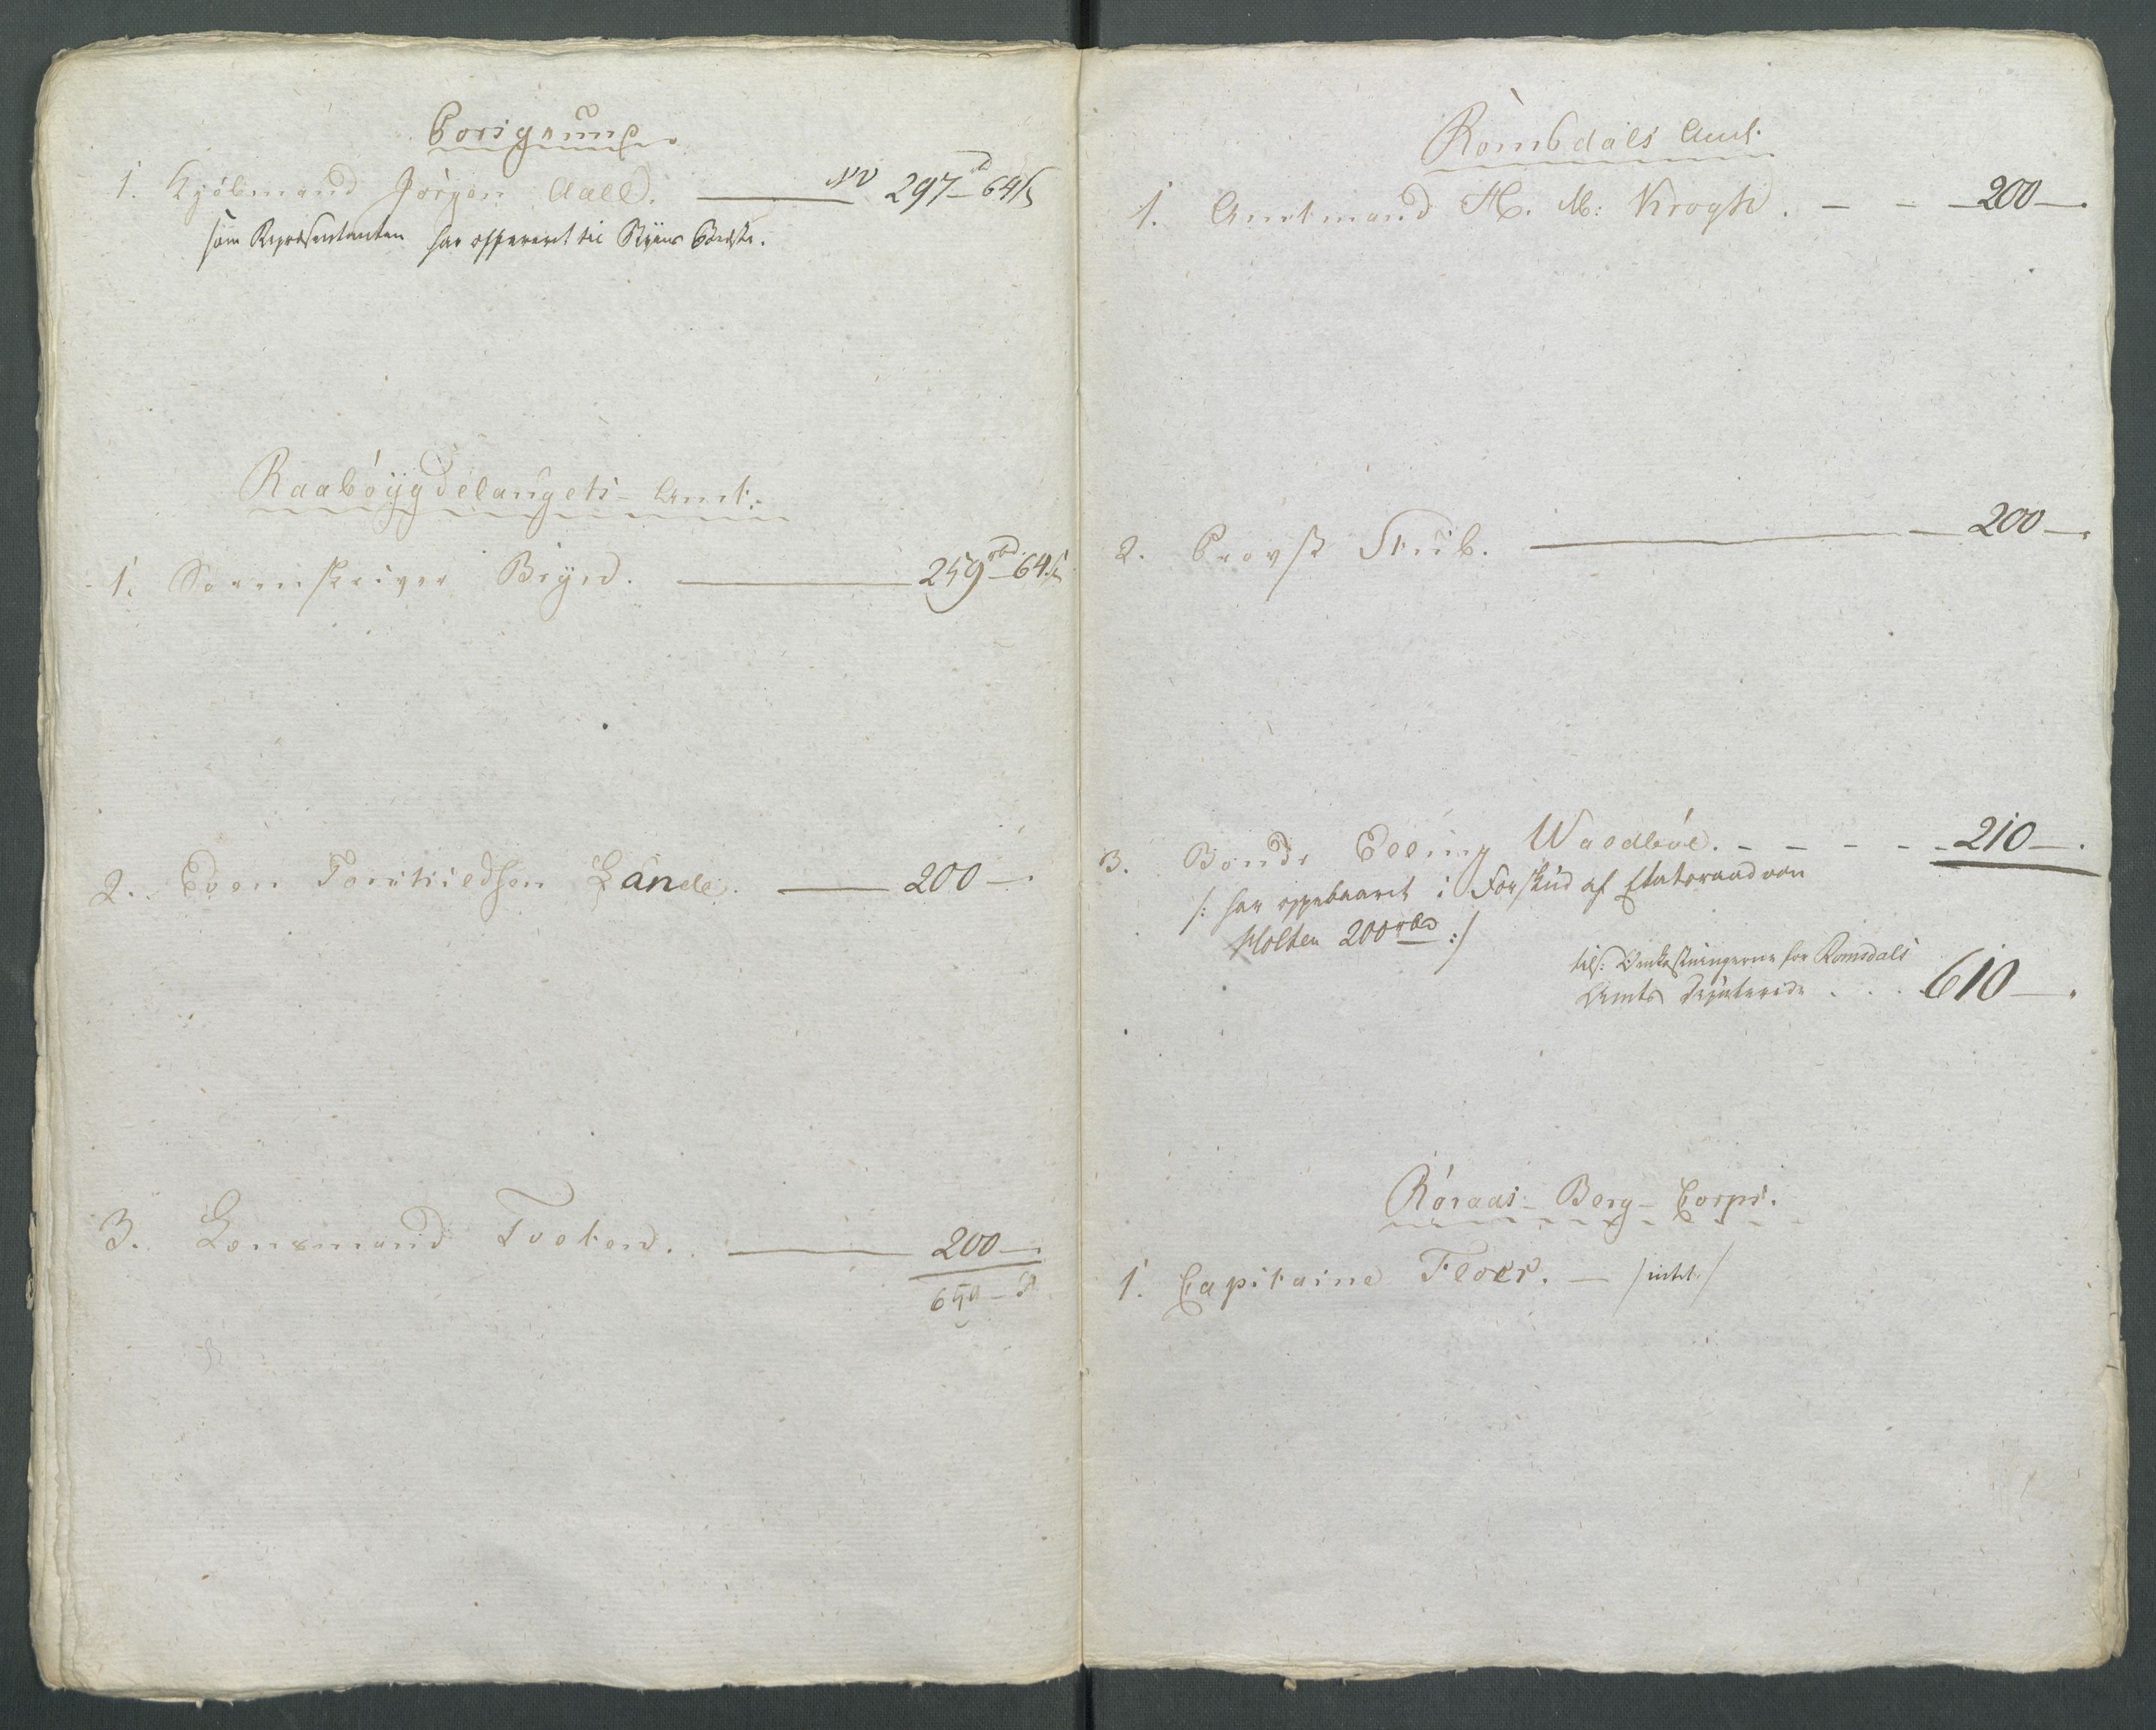 Porsgrund
1. Kjöbmand Jörgen Aall. NV 297 rd 64 s
som Repræsentanten har offereret til Byens Bedste.
Raaböÿgdelaugets Amt.
1. Sorenskriver Brÿnd. 259 rbd 64 s
2. Even Torkildsen Lande. 200 —
3. Lensmand Tveten. 200 —
Rombdals Amt.
1. Amtmand H. M: Krogh. — — 200 —.
2. Provst Stub. 200 —.
3. Bonde Elling Waldböe. - - - - - 210 —.
/: har oppebaaret i Forskud af Etatsraad von
Holten 200 rbd :/
tils: Omkostningerne for Romsdals
Amts Deputerede . . . 610 — .
Röraas - Berg - Corps.
1. Capitaine Floer. — / intet /